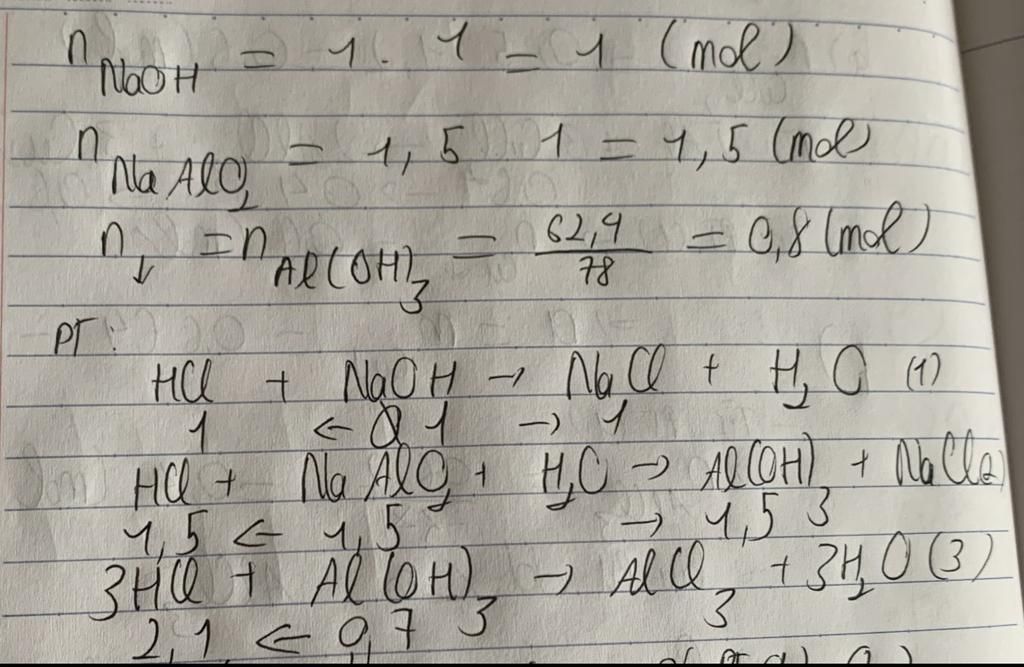 n NaOH = 1 . 1 = 1 (mol)
n NaAlO2 = 1,5 1 = 1,5 (mol)
n↓ = n Al(OH)3 = 62,4/78 = 0,8 (mol)
PT:
HCl + NaOH → NaCl + H2O (1)
1 ← 1 → 1
HCl + NaAlO2 + H2O → Al(OH)3 + NaCl (2)
1,5 ← 1,5 → 1,5
3HCl + Al(OH)3 → AlCl3 + 3H2O (3)
2,1 ← 0,7